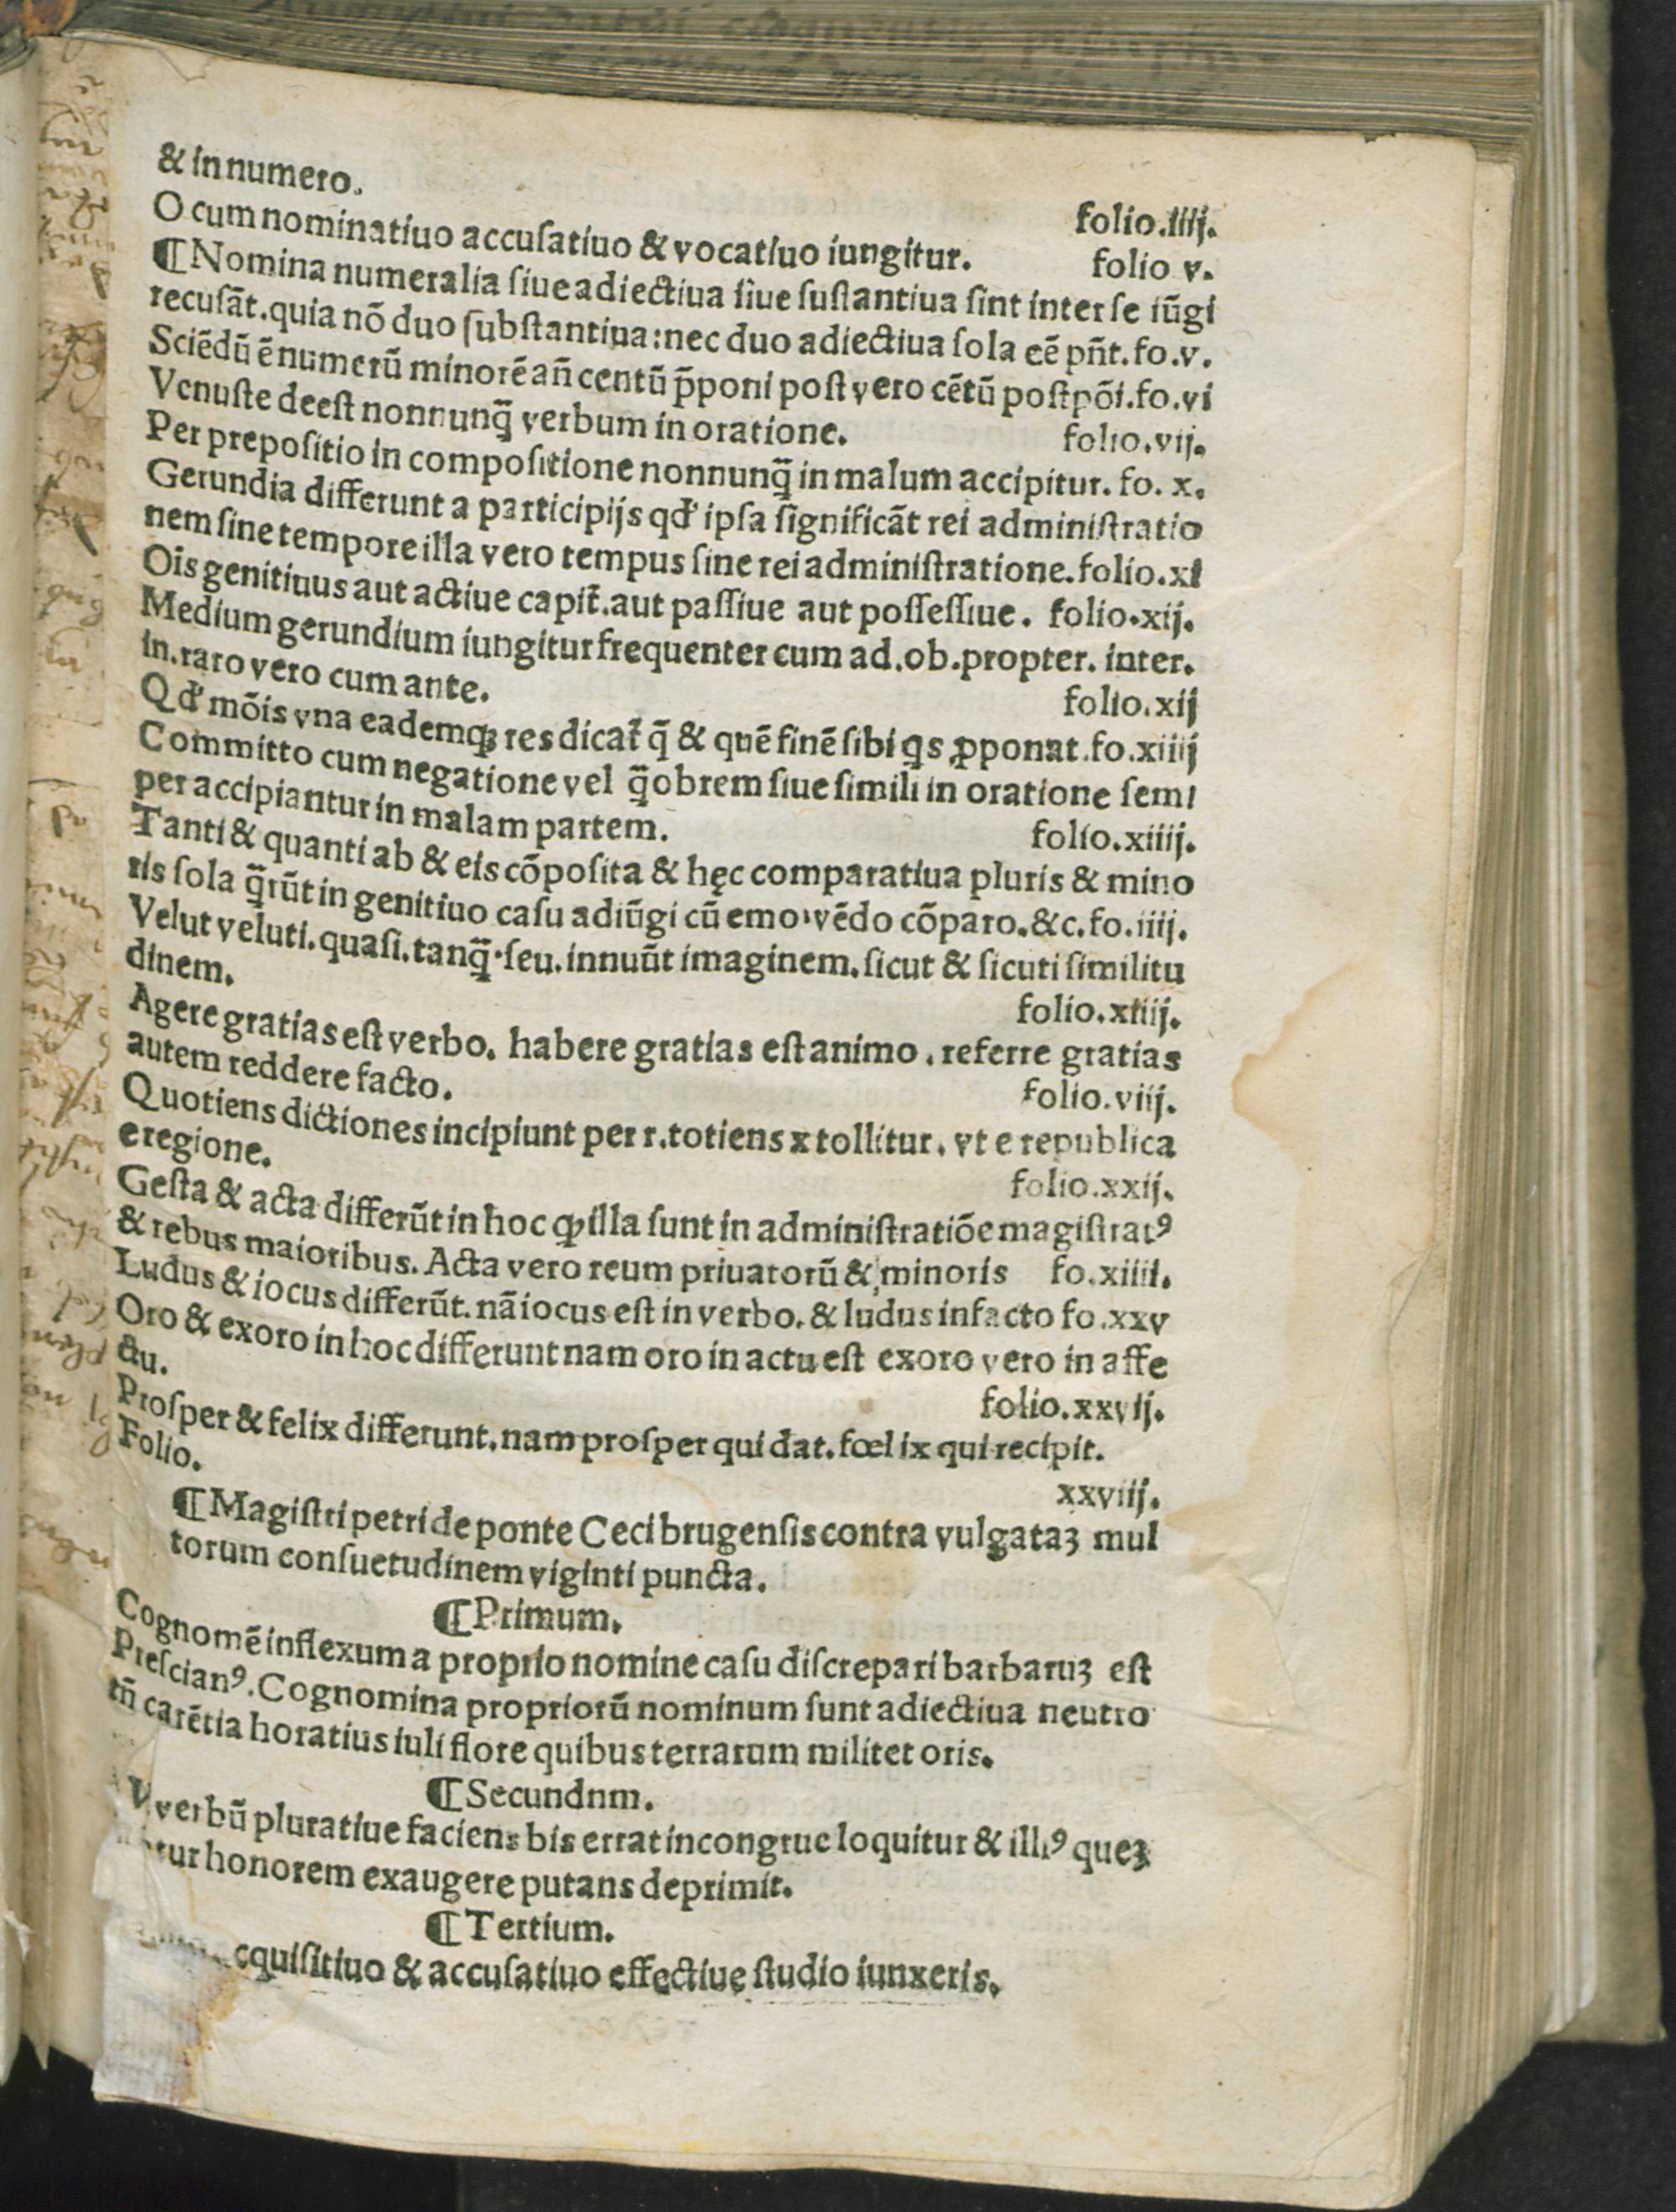 & in numero. folio.iiij.
O cum nominatiuo accuſatiuo & vocatiuo iungitur. folio v.
¶Nomina numeralia ſiue adiectiua ſiue ſuſtantiua ſint inter ſe iūgi
recuſāt.quia nō duo ſubſtantiua:nec duo adiectiua ſola eē pñt.fo.v.
Sciēdū ē numerū minorē añ centū p̄poni poſt vero cētū poſtpōi.fo.vi
Venuſte deeſt nonnunq̄ verbum in oratione. folio.vij.
Per prepoſitio in compoſitione nonnunq̄ in malum accipitur. fo. x.
Gerundia differunt a participijs qđ ipſa ſignificāt rei adminiſtratio
nem ſine tempore illa vero tempus ſine rei adminiſtratione.folio.xi
Oīs genitiuus aut actiue capit̄.aut paſſiue aut poſſeſſiue. folio.xij.
Medium gerundium iungitur frequenter cum ad.ob.propter. inter.
in.raro vero cum ante. folio.xij
Qđ mōis vna eademqꝫ res dicat̄ q̄ & quē finē ſibi qs ꝓponat.fo.xiiij
Committo cum negatione vel q̄obrem ſiue ſimili in oratione ſemꝑ
per accipiantur in malam partem. folio.xiiij.
Tanti & quanti ab & eis cōpoſita & hęc comparatiua pluris & mino
ris ſola q̄rūt in genitiuo caſu adiūgi cū emo,vēdo cōparo.&c.fo.iiij.
Velut veluti.quaſi.tanq̄.ſeu.innuūt imaginem.ſicut & ſicuti ſimilitu
dinem. folio.xiiij.
Agere gratias eſt verbo. habere gratias eſt animo . referre gratias
autem reddere facto. folio.viij.
Quotiens dictiones incipiunt per r.totiens x tollitur. vt e republica
e regione. folio.xxij.
Geſta & acta differūt in hoc ꝙ illa ſunt in adminiſtratiōe magiſtratꝰ
& rebus maioribus. Acta vero reum priuatorū & minoris fo.xiiii.
Ludus & iocus differūt.nā iocus eſt in verbo.& ludus infacto fo.xxv
Oro & exoro in hoc differunt nam oro in actu eſt exoro vero in affe
ctu. folio.xxvij.
Proſper & felix differunt.nam proſper qui dat.fœlix qui recipit.
Folio. xxviij.
¶Magiſtri petri de ponte Ceci brugenſis contra vulgataꝫ mul
torum conſuetudinem viginti puncta.
¶Primum.
Cognomē inflexum a proprio nomine caſu diſcrepari barbaruꝫ eſt
Preſcianꝰ.Cognomina propriorū nominum ſunt adiectiua neutro
tñ carētia horatius iuli flore quibus terrarum militet oris.
¶Secundnm.
verbū pluratiue faciens bis errat incongrue loquitur & illiꝰ queꝫ
tur honorem exaugere putans deprimit.
¶Tertium.
cquiſitiuo & accuſatiuo effectiue ſtudio iunxeris.